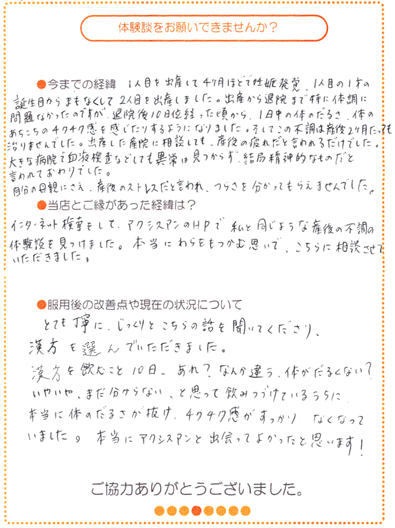 体験談をお願いできませんか？
●今までの経緯 1人目を出産して4ヶ月ほどで妊娠発覚、1人目の1才の
誕生日からまもなくして2人目を出産しました。出産から退院まで特に体調に
問題なかったのですが、退院後10日位経った頃から、1日中の体のだるさ、体の
あちこちのチクチク感を感じたりするようになりました。そしてこの不調は産後2ヶ月たっても
治りませんでした。出産した産院に相談しても、産後の疲れだと言われるだけでした。
大きな病院で血液検査などしても異常は見つからず、結局精神的なものだと
言われておわりでした。
自分の母親にさえ、産後のストレスだと言われ、つらさを分かってもらえませんでした。
●当店とご縁があった経緯は？
インターネット検索をして、アクシスアンのHPで私と同じような産後の不調の
体験談を見つけました。本当にわらをもつかむ思いで、こちらに相談させて
いただきました。
●服用後の改善点や現在の状況について
とても丁寧に、じっくりとこちらの話を聞いてくださり、
漢方を選んでいただきました。
漢方を飲むこと10日、あれ？なんか違う、体がだるくない？
いやいや、まだ分からない、と思って飲みつづけているうちに
本当に体のだるさが抜け、チクチク感がすっかりなくなって
いました。本当にアクシスアンと出会ってよかったと思います！
ご協力ありがとうございました。